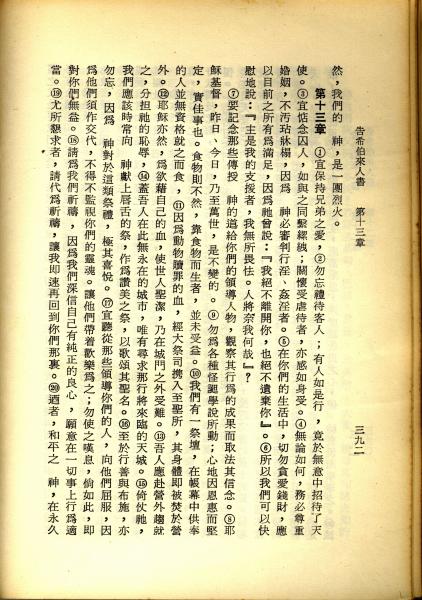 告希伯來人書　第十三章　三九二
然，我們的　神，是一團烈火。
第十三章　①宜保持兄弟之愛。②勿忘禮待客人；有人如是行，竟於無意中招待了天
使。③宜惦念囚人，如與之同繫縲絏；關懷受虐待者，亦感如身受。④無論如何，務必尊重
婚姻，不汚玷牀榻，因爲　神必審判行淫、姦淫者。⑤在你們的生活中，切勿貪愛錢財，應
以目前之所有爲滿足，因爲祂曾說：『我絕不離開你，也絕不遺棄你』。⑥所以我們可以快
慰地說：『主是我的支援者，我無所畏怯。人將奈我何哉』？
⑦要記念那些傳授　神的道給你們的領導人物，觀察其行爲的成果而取法其信念。⑧耶
穌基督，昨日、今日，乃至萬世，是不變的。⑨勿爲各種怪誕學說所動；心地因恩惠而堅
定，實佳事也。食物則不然，靠食物而生者，並未受益。⑩我們有一祭壇，在帳幕中供奉
的人並無資格就之而食，⑪因爲動物贖罪的血，經大祭司携入至聖所，其身體即被焚於營
外。⑫耶穌亦然，爲欲藉自己的血，使世人聖潔，乃在城門之外受難。⑬吾人應赴營外趨就
之，分担祂的恥辱，⑭蓋吾人在此無永在的城市，唯有尋求那行將來臨的天城。⑮倚伙祂，
我們應該時常向　神獻上唇舌的祭，作爲讚美之祭，以歌頌其聖名。⑯至於行善與布施，亦
勿忘，因爲　神對於這類祭禮，極其喜悅。⑰宜聽從那些領導你們的人，向他們屈服，因
爲他們須作交代，不得不監視你們的靈魂。讓他們帶着歡樂爲之；勿使之嘆息，倘如此，即
對你們無益。⑱請爲我們祈禱，因爲我們深信自己有純正的良心，願意在一切事上行爲適
當。⑲尤所懇求者，請代爲祈禱，讓我即速再回到你們那裏。⑳迺者，和平之　神，在永久